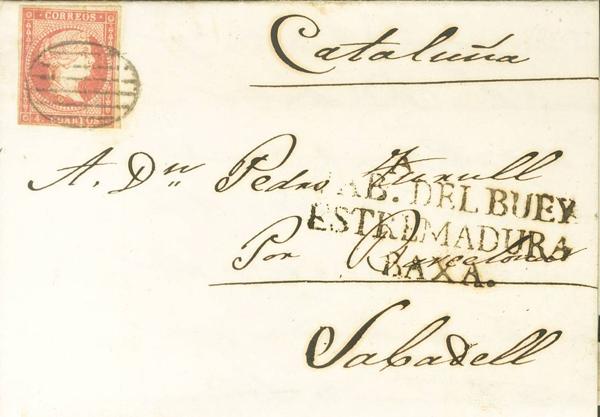 CORREOS
4 CUARTOS
Cataluña
A. Dn Pedro Turull
A
CAB. DEL BUEY
ESTREMADURA
BAXA.
Por Barcelona
Sabadell